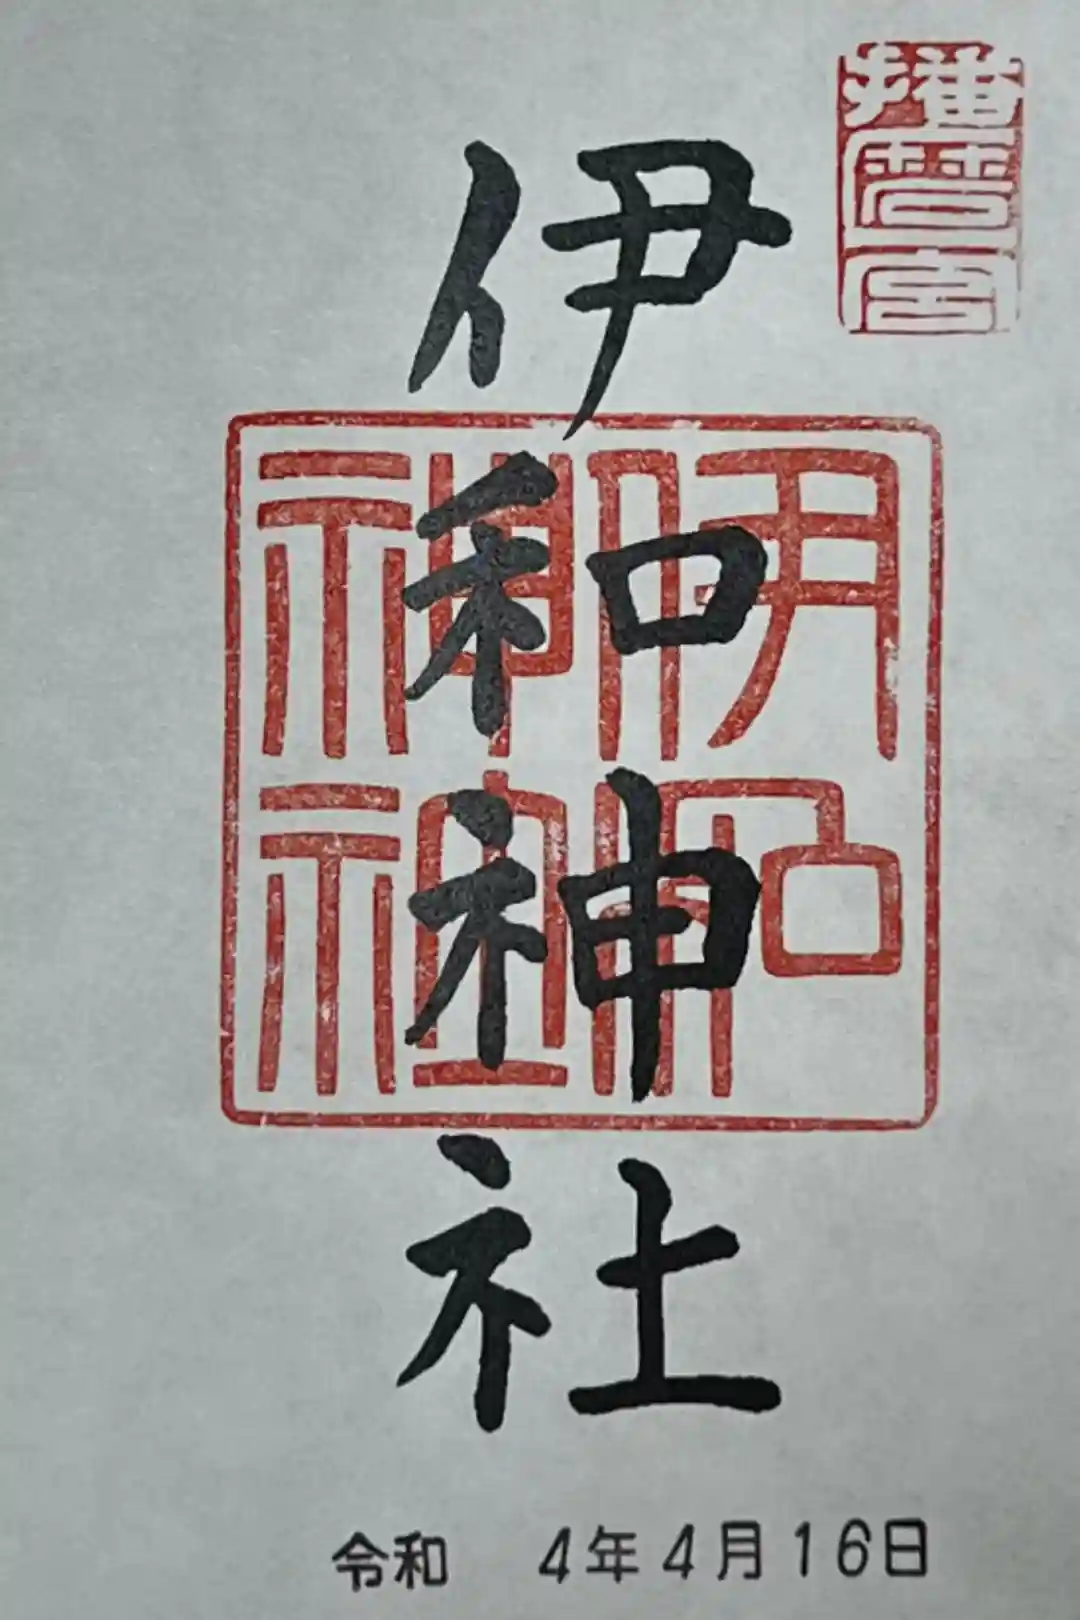 播磨宮
伊和神社
伊和神社
令和 4年4月16日